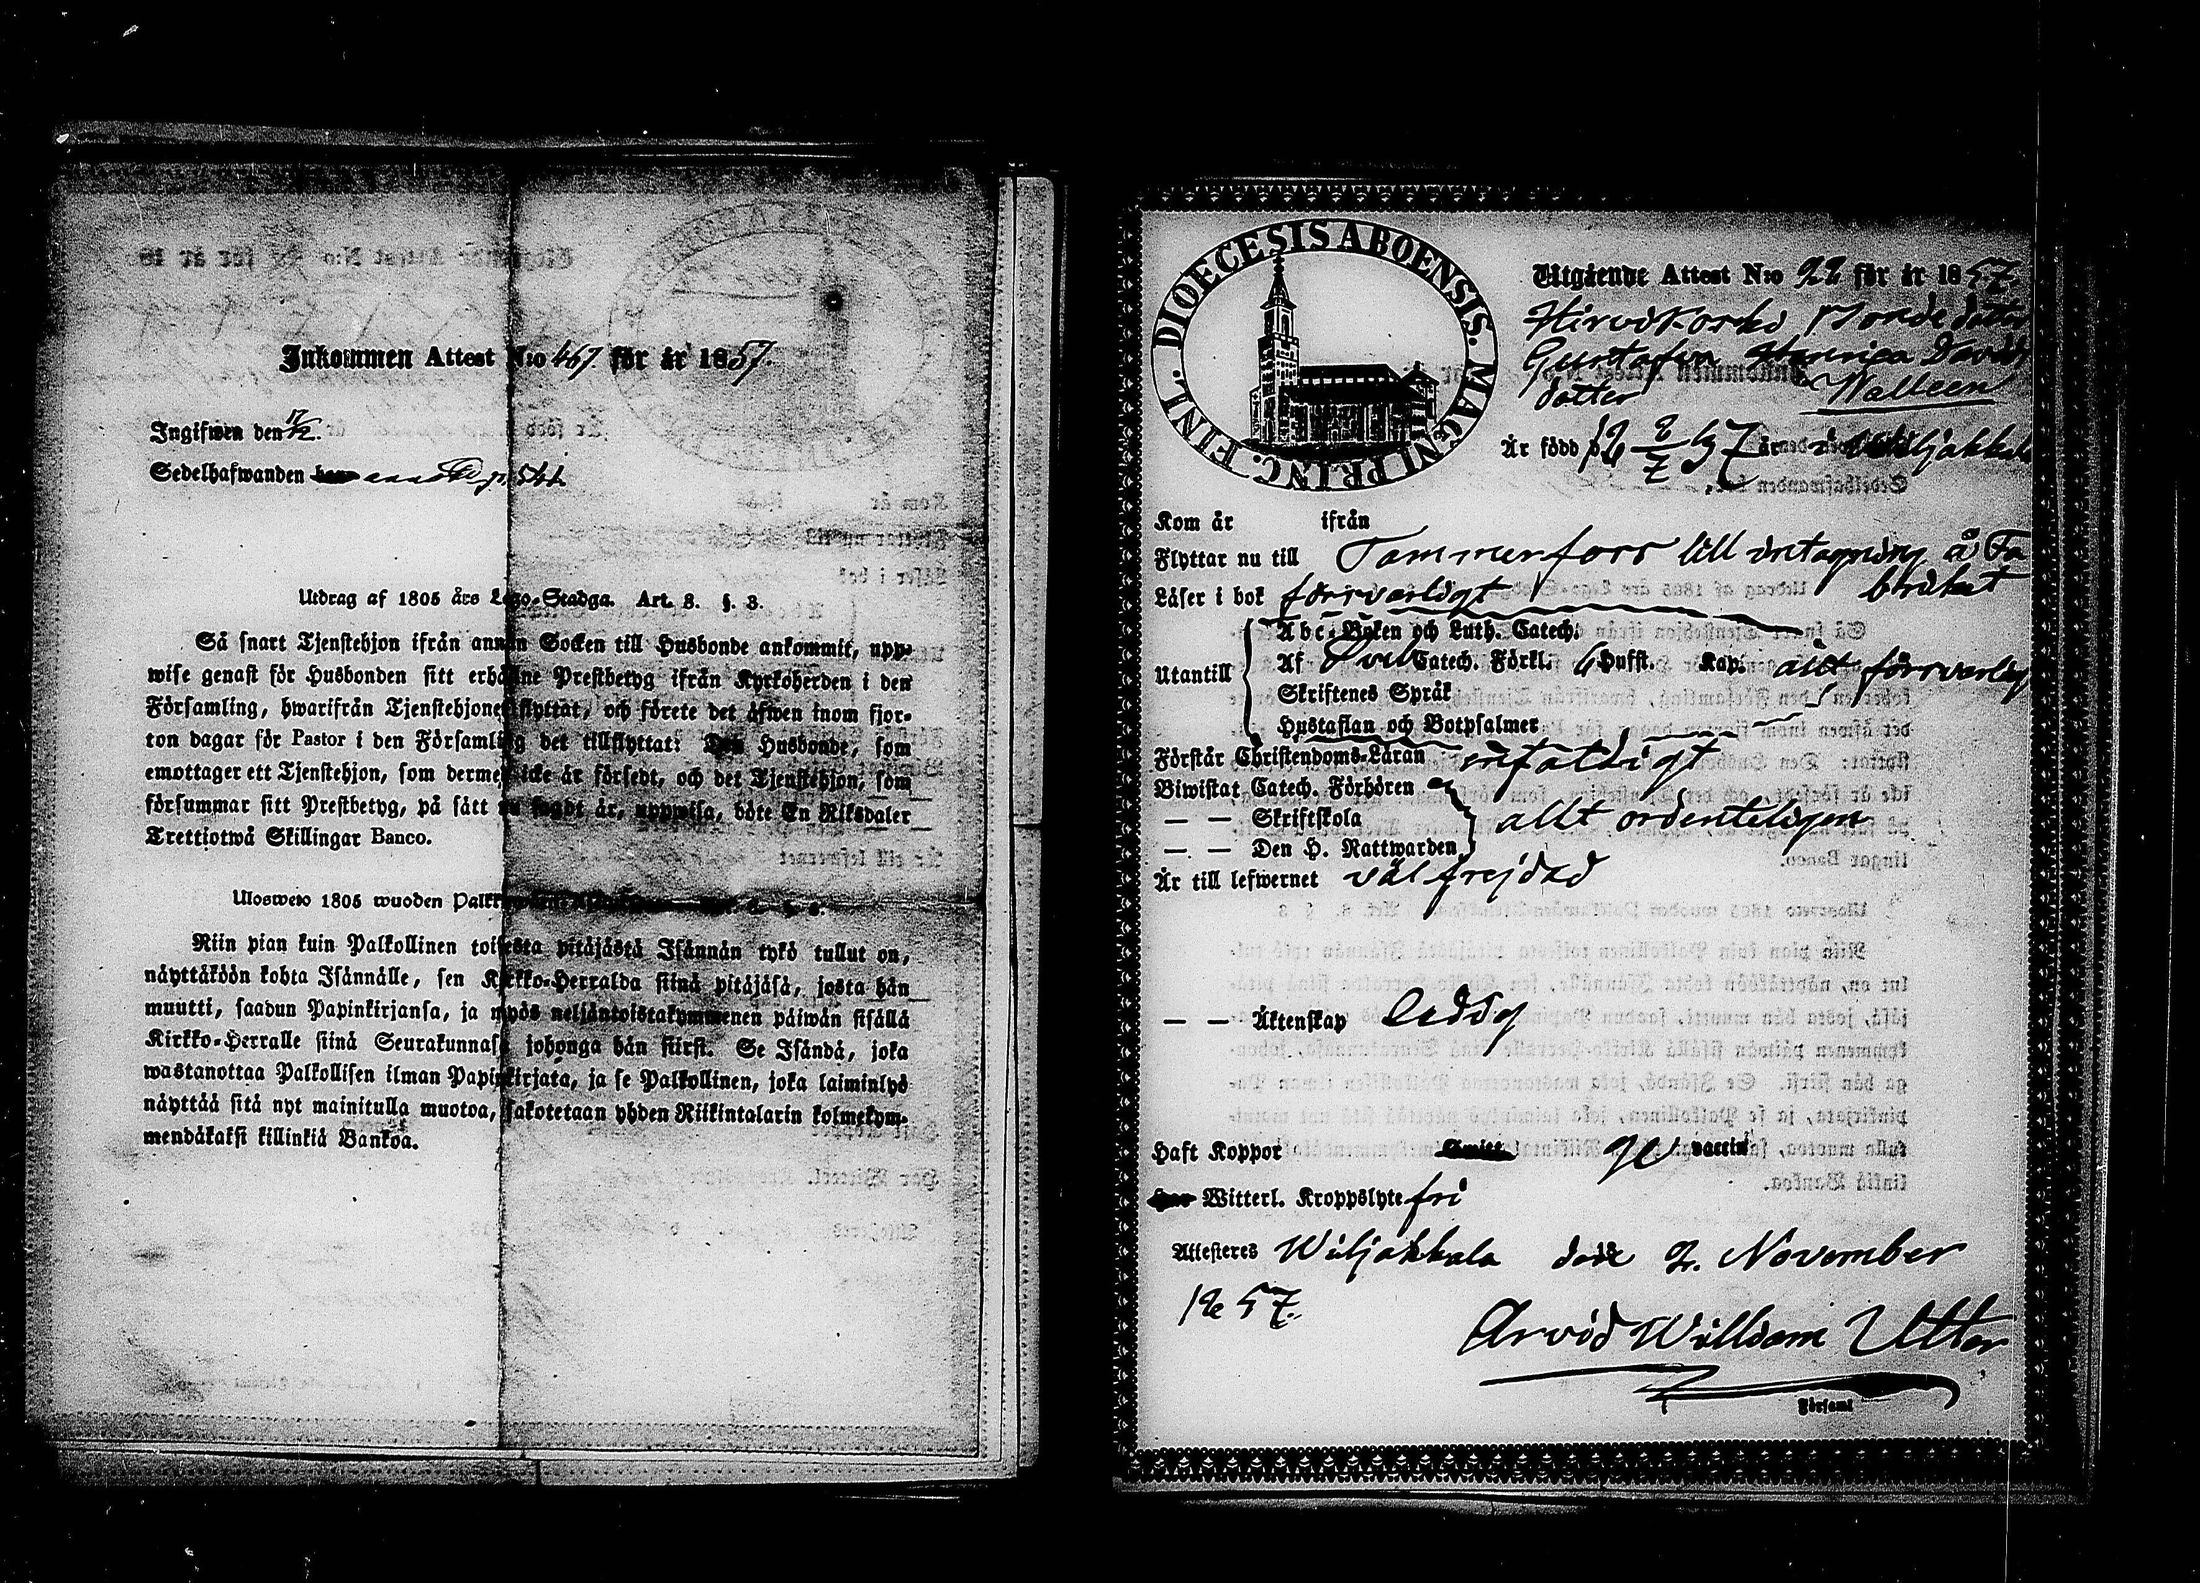 Inkommen Attest N:o 467. för år 1857.
Ingifwen den 17/12.
Sedelhafwanden
Utdrag af 1805 års Lego-Stadga. Art. 8. §. 3.
Så snart Tjenstehjon ifrån annan Socken till Husbonde ankommit, upp-
wise genast för Husbonden sitt erhållne Prestbetyg ifrån Kyrkoherden i den
Församling, hwarifrån Tjenstehjonet flyttat, och förete det äfwen inom fjor-
ton dagar för Pastor i den Församling det tillflyttat: Den Husbonde, som
emottager ett Tjenstehjon, som dermed icke är försedt, och det Tjenstehjon, som
försummar sitt Prestbetyg, på sätt nu sagdt är, uppwisa, böte En Riksdaler
Trettiotwå Skillingar Banco.
Uloswero 1805 wuoden
Niin pian kuin Palkollinen toisesta pitäjästä Isännän tykö tullut on,
näyttäköön kohta Isännälle, sen Kirkko-Herralda siinä pitäjäsä, josta hän
muutti, saadun Papinkirjansa, ja myös neljäntoistakymmenen päiwän sisällä
Kirkko-Herralle siinä Seurakunnasa johonga hän siirsi. Se Isändä, joka
wastanottaa Palkollisen ilman Papinkirjata, ja se Palkollinen, joka laiminlyö
näyttää sitä nyt mainitulla muotoa, sakotetaan yhden Riikintalarin kolmekym-
mendäkaksi killinkiä Bankoa.
DIOECESIS ABOENSIS. MAGNI PRINC. FINL.
Utgående Attest N:o 22 för år 1857.
Hirvikoski Bonde dotter
Gustafva Henrica Davids
dotter Walleen
Är född 18 8/7 37 i Wiljakkala
Kom år ifrån
Flyttar nu till Tammerfors till intagning å Fa
Läser i bok försvarligt bruket
Utantill
Abc-Boken och Luth. Catech.
Af Sveb Catech. Förkl. 6 Hufst. Kap. allt försvarligt
Skriftenes Språk
Hustaflan och Botpsalmer
Förstår Christendoms-Läran enfaldigt
Biwistat Catech. Förhören
— — Skriftskola allt ordenteligen
— — Den H. Nattwarden
Är till lefwernet väl frejdad
— — Äktenskap ledig
Haft Koppor vaccin
Witterl. Kroppslyte fri
Attesteres Wiljakkala den 2. November
1857.
Arvid William Utter
Församl